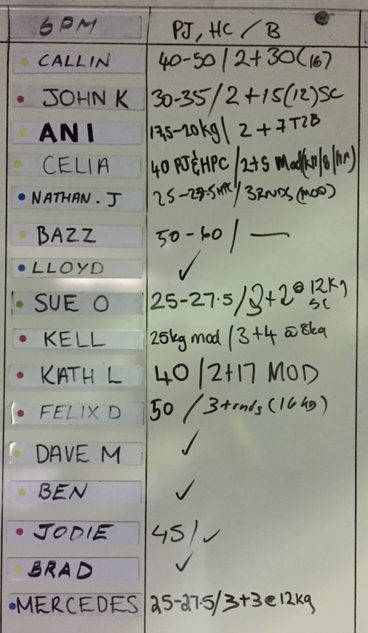 6PM PJ, HC / B
CALLIN 40-50 / 2+30 (16)
JOHN K 30-35 / 2+15 (12) SC
ANI 17,5-20kg / 2+7 T2B
CELIA 40 PJ&HPC / 2+5 Mod
NATHAN.J 25-27.5 HPC / 3 RNDS (MOD)
BAZZ 50-60 / —
LLOYD ✓
SUE O 25-27.5 / 3+2 @ 12kg SC
KELL 25kg mod / 3+4 @ 8kg
KATH L 40 / 2+17 MOD
FELIX D 50 / 3+rnds (16kg)
DAVE M ✓
BEN ✓
JODIE 45 / ✓
BRAD ✓
MERCEDES 25-27.5 / 3+3 @ 12kg